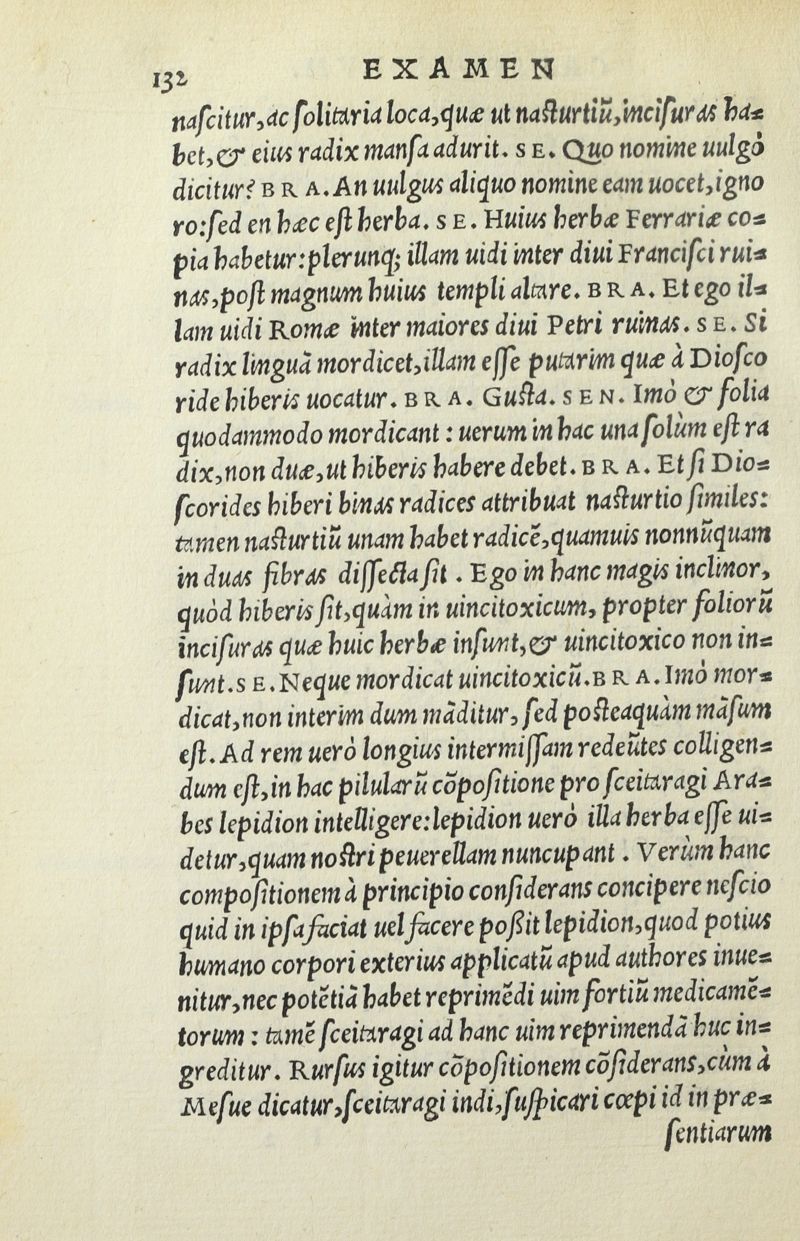 132 EXAMEN
naſcitur,ac ſolitaria loca,quæ ut naſturtiũ,inciſuras ha=
bet,& eius radix manſa adurit. SE. Quo nomine uulgò
dicitur? BRA. An uulgus aliquo nomine eam uocet,igno
ro:ſed en hæc eſt herba. SE. Huius herbæ Ferrariæ co=
pia habetur:plerunq; illam uidi inter diui Franciſci rui=
nas,poſt magnum huius templi altare. BRA. Et ego il=
lam uidi Romæ inter maiores diui Petri ruinas. SE. Si
radix linguã mordicet,illam eſſe putarim quæ à Dioſco
ride hiberis uocatur. BRA. Guſta. SEN. Imò & folia
quodammodo mordicant: uerum in hac una ſolùm eſt ra
dix,non duæ,ut hiberis habere debet. BRA. Et ſi Dio=
ſcorides hiberi binas radices attribuat naſturtio ſimiles:
tamen naſturtiũ unam habet radicẽ,quamuis nonnũquam
in duas fibras diſſecta ſit. Ego in hanc magis inclinor,
quòd hiberis ſit,quàm in uincitoxicum, propter foliorũ
inciſuras quæ huic herbæ inſunt,& uincitoxico non in=
ſunt. SE. Neque mordicat uincitoxicũ. BRA. Imò mor=
dicat,non interim dum mãditur, ſed poſteaquàm mãſum
eſt. Ad rem uerò longius intermiſſam redeũtes colligen=
dum eſt,in hac pilularũ cõpoſitione pro ſceitaragi Ara=
bes lepidion intelligere:lepidion uerò illa herba eſſe ui=
detur,quam noſtri peuerellam nuncupant. Verùm hanc
compoſitionem à principio conſiderans concipere neſcio
quid in ipſa faciat uel facere poßit lepidion,quod potius
humano corpori exterius applicatũ apud authores inue=
nitur,nec potẽtiã habet reprimẽdi uim fortiũ medicamẽ=
torum: tamẽ ſceitaragi ad hanc uim reprimendã huc in=
greditur. Rurſus igitur cõpoſitionem cõſiderans,cùm à
Meſue dicatur,ſceitaragi indi,ſuſpicari cœpi id in præ=
ſentiarum